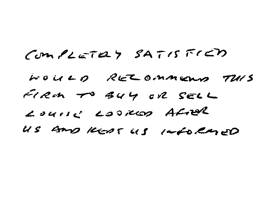 COMPLETELY SATISFIED
WOULD RECOMMEND THIS
FIRM TO BUY OR SELL
LOUISE LOOKED AFTER
US AND KEPT US INFORMED